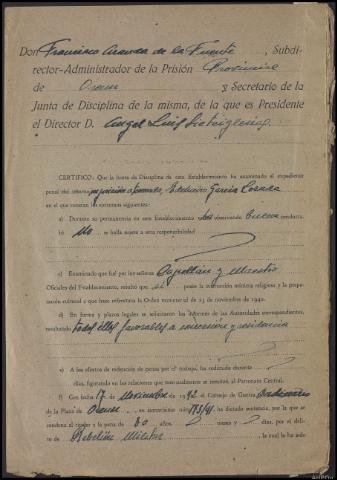 Don Francisco Aranda de la Fuente, Subdi-
rector-Administrador de la Prisión Provincial
de Orense y Secretario de la
Junta de Disciplina de la misma, de la que es Presidente
el Director D. Angel Luis
CERTIFICO: Que la Junta de Disciplina de este Establecimiento ha examinado el expediente
penal del interno Edelmiro Garcia
en el que constan los extremos siguientes:
a) Durante su permanencia en este Establecimiento ha observado buena conducta.
b) No se halla sujeto a otra responsabilidad
c) Examinado que fué por los señores Capellan y Maestro
Oficiales del Establecimiento, resultó que sí posee la instrucción mínima religiosa y la prepa-
ración cultural a que hace referencia la Orden ministerial de 23 de noviembre de 1940.
d) En forma y plazos legales se solicitaron los informes de las Autoridades correspondientes,
resultando todos ellos favorables a concesion y residencia
e) A los efectos de redención de penas por el trabajo, ha redimido durante
días, figurando en las relaciones que mensualmente se remiten al Patronato Central.
f) Con fecha 17 de Noviembre de 1942 el Consejo de Guerra Ordinario
de la Plaza de Orense, en sumarísimo núm. 193/41 ha dictado sentencia, por la que se
condena al citado a la pena de 30 años, meses y días, por el deli-
to de Rebelión Militar, la cual le ha sido